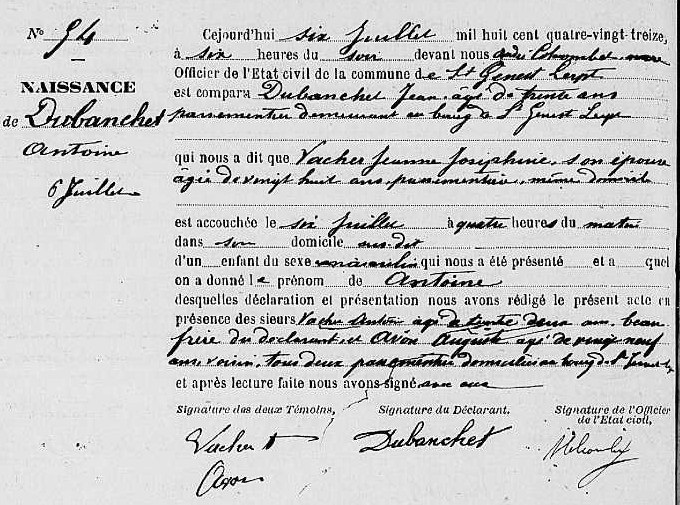 N° 94
NAISSANCE
de Dubanchet
Antoine
6 Juillet
Cejourd'hui six Juillet mil huit cent quatre-vingt-treize,
à six heures du soir devant nous André Colrombet maire
Officier de l'Etat civil de la commune de St Genest Lerpt
est comparu Dubanchet Jean, agé de trente ans
passementier demeurant au bourg de St Genest Lerpt
qui nous a dit que Vacher Jeanne Joséphine, son épouse
âgée de vingt huit ans, passementière, même domicile
est accouchée le six Juillet à quatre heures du matin
dans son domicile sus dit
d'un enfant du sexe masculin qui nous a été présenté et a quel
on a donné le prénom de Antoine
desquelles déclaration et présentation nous avons rédigé le présent acte en
présence des sieurs Vacher Antoine agé de trente deux ans, beau
frère du déclarant, et Avon Auguste agé de vingt neuf
ans, voisin, tous deux passementiers domiciliés au bourg de St Genest
et après lecture faite nous avons signé avec eux
Signature des deux Témoins,
Signature du Déclarant.
Signature de l'Officier
de l'Etat civil,
Vacher A
Dubanchet
Avon